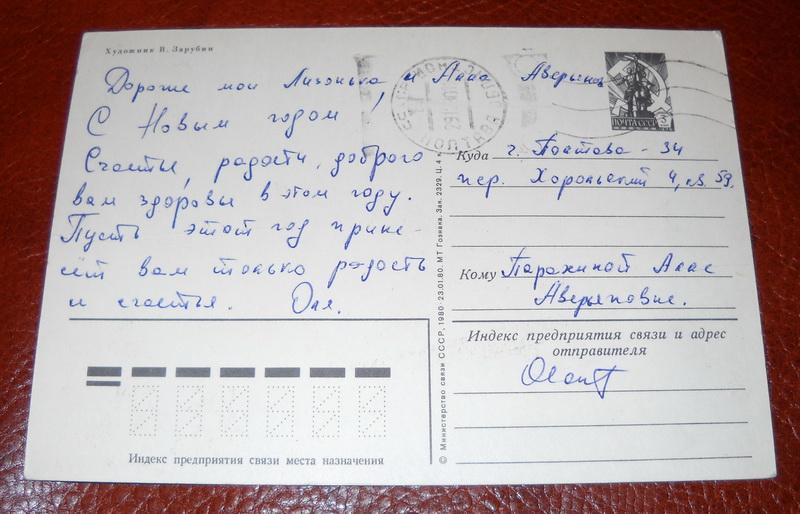 Художник В. Зарубин
Дорогие мои Лизонька и Алла Аверьян
С Новым годом!
Счастья, радости, доброго
вам здоровья в этом году.
Пусть этот год прине-
сёт вам только радость
и счастья. Оля.
ПОЧТА СССР 3
ПОЛТАВА
Куда г. Полтава - 34
пер. Хорольский 4, кв. 59.
Кому Паражиной Алле
Аверьяновне.
Индекс предприятия связи и адрес
отправителя
Индекс предприятия связи места назначения
© Министерство связи СССР, 1980. 23.01.80. МТ Гознака. Зак. 2329. Ц. 4 к.